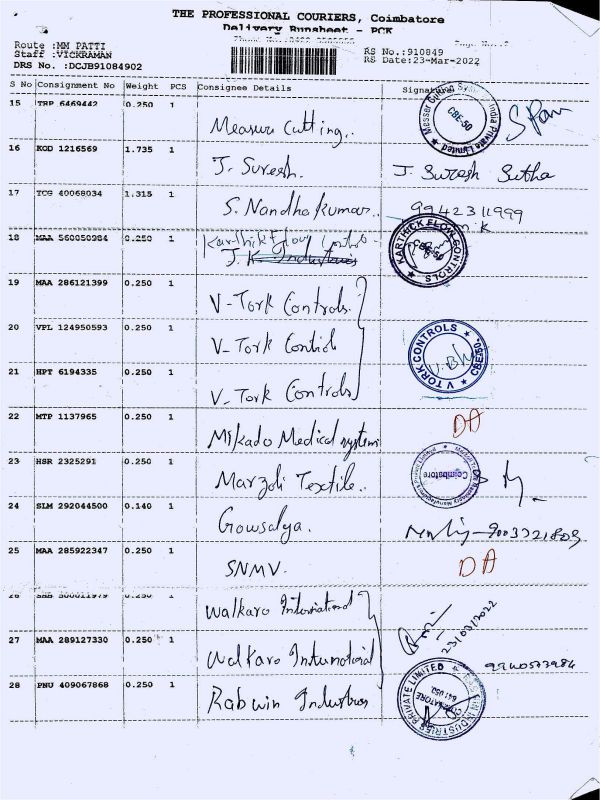 THE PROFESSIONAL COURIERS, Coimbatore
Delivery Runsheet - PCK
Route :MM PATTI
Staff :VICKRAMAN
DRS No. :DCJB91084902
RS No.:910849
RS Date:23-Mar-2022
S No Consignment No Weight PCS Consignee Details Signature
15 TRP 6469442 0.250 1 Measure Cutting..
16 KOD 1216569 1.735 1 J. Suresh. J. Suresh Sutha
17 TCG 40068034 1.315 1 S. Nandha kumar.. 9942311999
18 MAA 560050984 0.250 1 Karthik Flow Controls
J. K. Industries
KARTHICK FLOW CONTROLS
CBE-50
19 MAA 286121399 0.250 1 V-Tork Controls.
20 VPL 124950593 0.250 1 V-Tork Contiols
V TORK CONTROLS
21 HPT 6194335 0.250 1 V-Tork Controls
22 MTP 1137965 0.250 1 Mikado Medical systems DA
23 HSR 2325291 0.250 1 Marzoli Textile..
Coimbatore
24 SLM 292044500 0.140 1 Gowsalya.
25 MAA 285922347 0.250 1 SNMV. DA
26 0.250 1 Walkaro International
23/03/2022
27 MAA 289127330 0.250 1 Walkaro International
28 PNU 409067868 0.250 1 Rabwin Industries